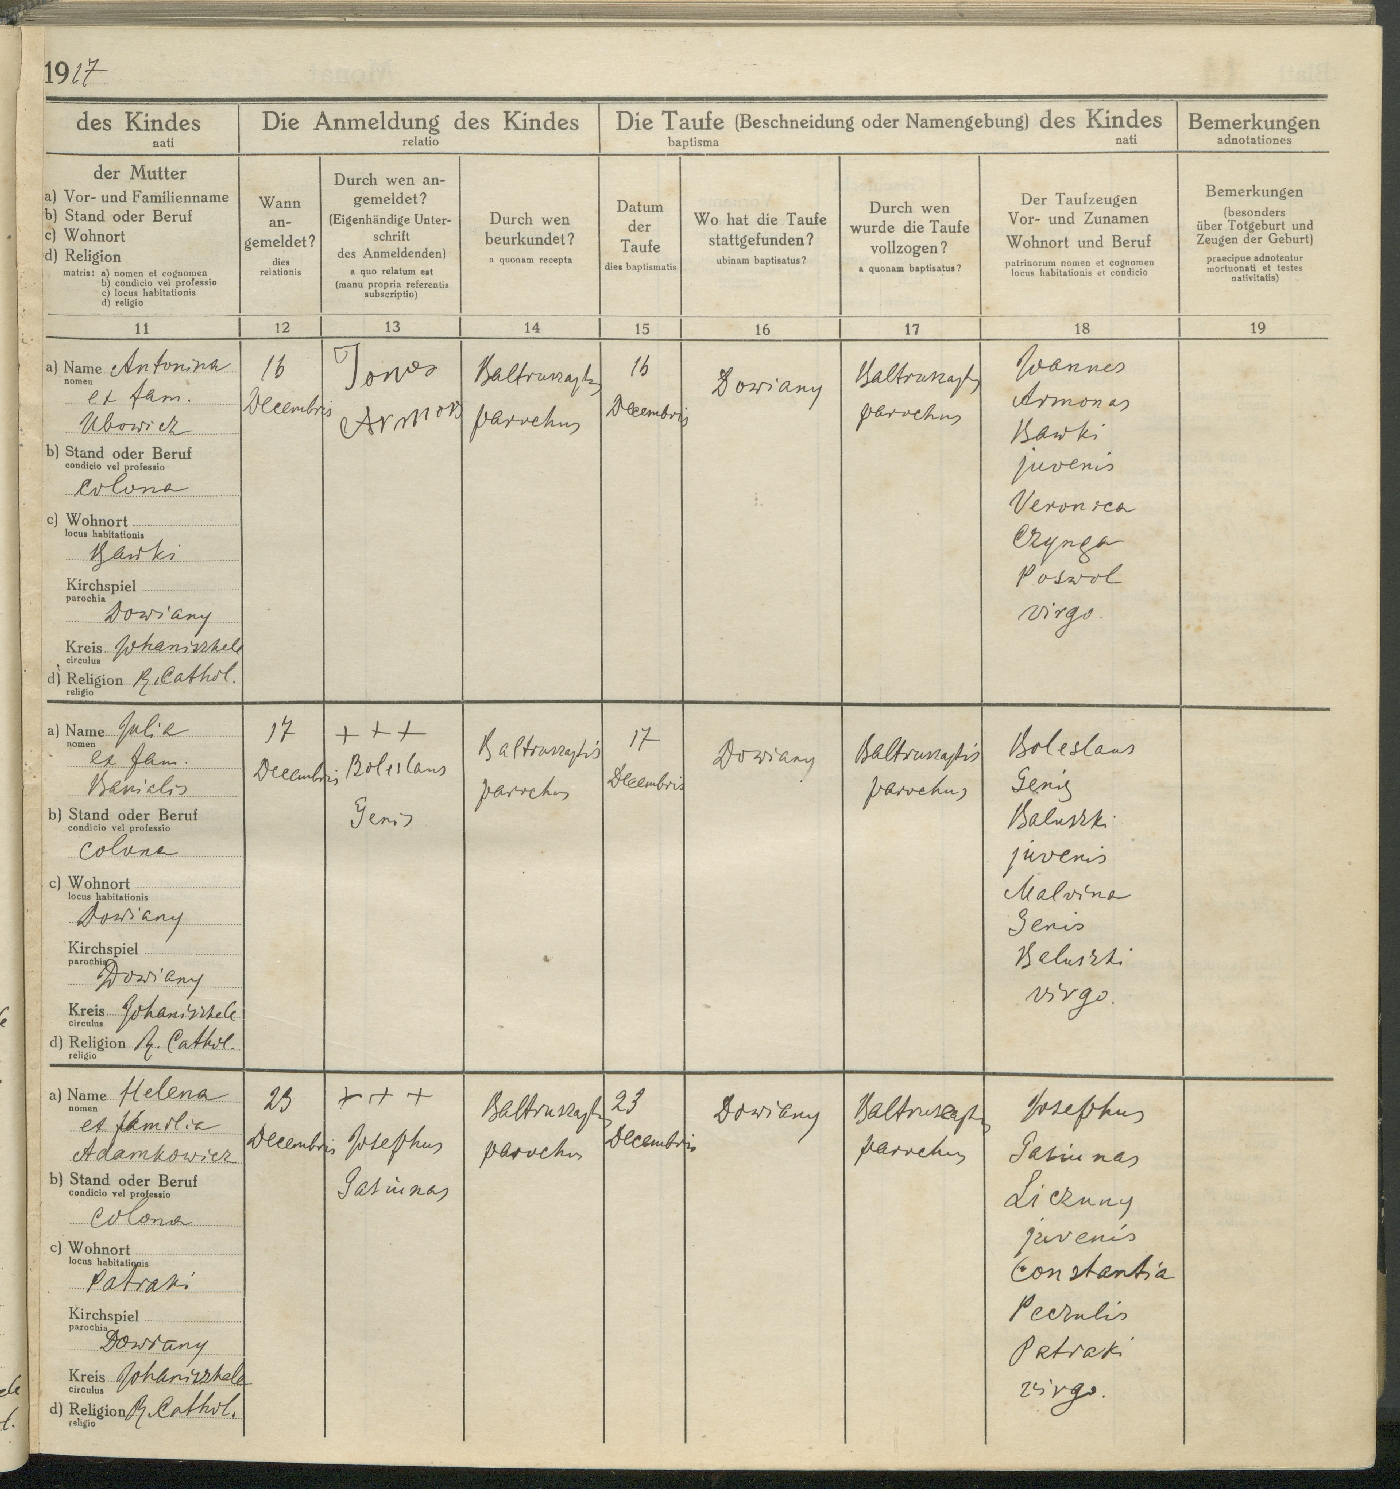 1917
des Kindes
nati
Die Anmeldung des Kindes
relatio
Die Taufe (Beschneidung oder Namengebung) des Kindes
baptisma nati
Bemerkungen
adnotationes
der Mutter
a) Vor- und Familienname
b) Stand oder Beruf
c) Wohnort
d) Religion
matris: a) nomen et cognomen
b) condicio vel professio
c) locus habitationis
d) religio
Wann
an-
gemeldet?
dies
relationis
Durch wen an-
gemeldet?
(Eigenhändige Unter-
schrift
des Anmeldenden)
a quo relatum est
(manu propria referentis
subscriptio)
Durch wen
beurkundet?
a quonam recepta
Datum
der
Taufe
dies baptismatis
Wo hat die Taufe
stattgefunden?
ubinam baptisatus?
Durch wen
wurde die Taufe
vollzogen?
a quonam baptisatus?
Der Taufzeugen
Vor- und Zunamen
Wohnort und Beruf
patrinorum nomen et cognomen
locus habitationis et condicio
Bemerkungen
(besonders
über Totgeburt und
Zeugen der Geburt)
praecipue adnotentur
mortuonati et testes
nativitatis)
11 12 13 14 15 16 17 18 19
a) Name Antonina
nomen
ex fam.
Ubowicz
b) Stand oder Beruf
condicio vel professio
colona
c) Wohnort
locus habitationis
Bawki
Kirchspiel
parochia
Dowiany
Kreis Johaniszkele
circulus
d) Religion R. Cathol.
religio
16
Decembris
Jonas
Armon
Baltruszajtis
parochus
16
Decembris
Dowiany
Baltruszajtis
parochus
Joannes
Armonas
Bawki
juvenis
Veronica
Czynga
Poswol
virgo.
a) Name Julia
nomen
ex fam.
Banialis
b) Stand oder Beruf
condicio vel professio
colona
c) Wohnort
locus habitationis
Dowiany
Kirchspiel
parochia
Dowiany
Kreis Johaniszkele
circulus
d) Religion R. Cathol.
religio
17
Decembris
+ + +
Boleslaus
Genis
Baltruszajtis
parochus
17
Decembris
Dowiany
Baltruszajtis
parochus
Boleslaus
Genis
Baluszki
juvenis
Malvina
Genis
Baluszki
virgo.
a) Name Helena
nomen
ex familia
Adamkowicz
b) Stand oder Beruf
condicio vel professio
colona
c) Wohnort
locus habitationis
Patraki
Kirchspiel
parochia
Dowiany
Kreis Johaniszkele
circulus
d) Religion R. Cathol.
religio
23
Decembris
+ + +
Josephus
Gasiunas
Baltruszajtis
parochus
23
Decembris
Dowiany
Baltruszajtis
parochus
Josephus
Gasiunas
Liczuny
juvenis
Constantia
Peczulis
Patraki
virgo.